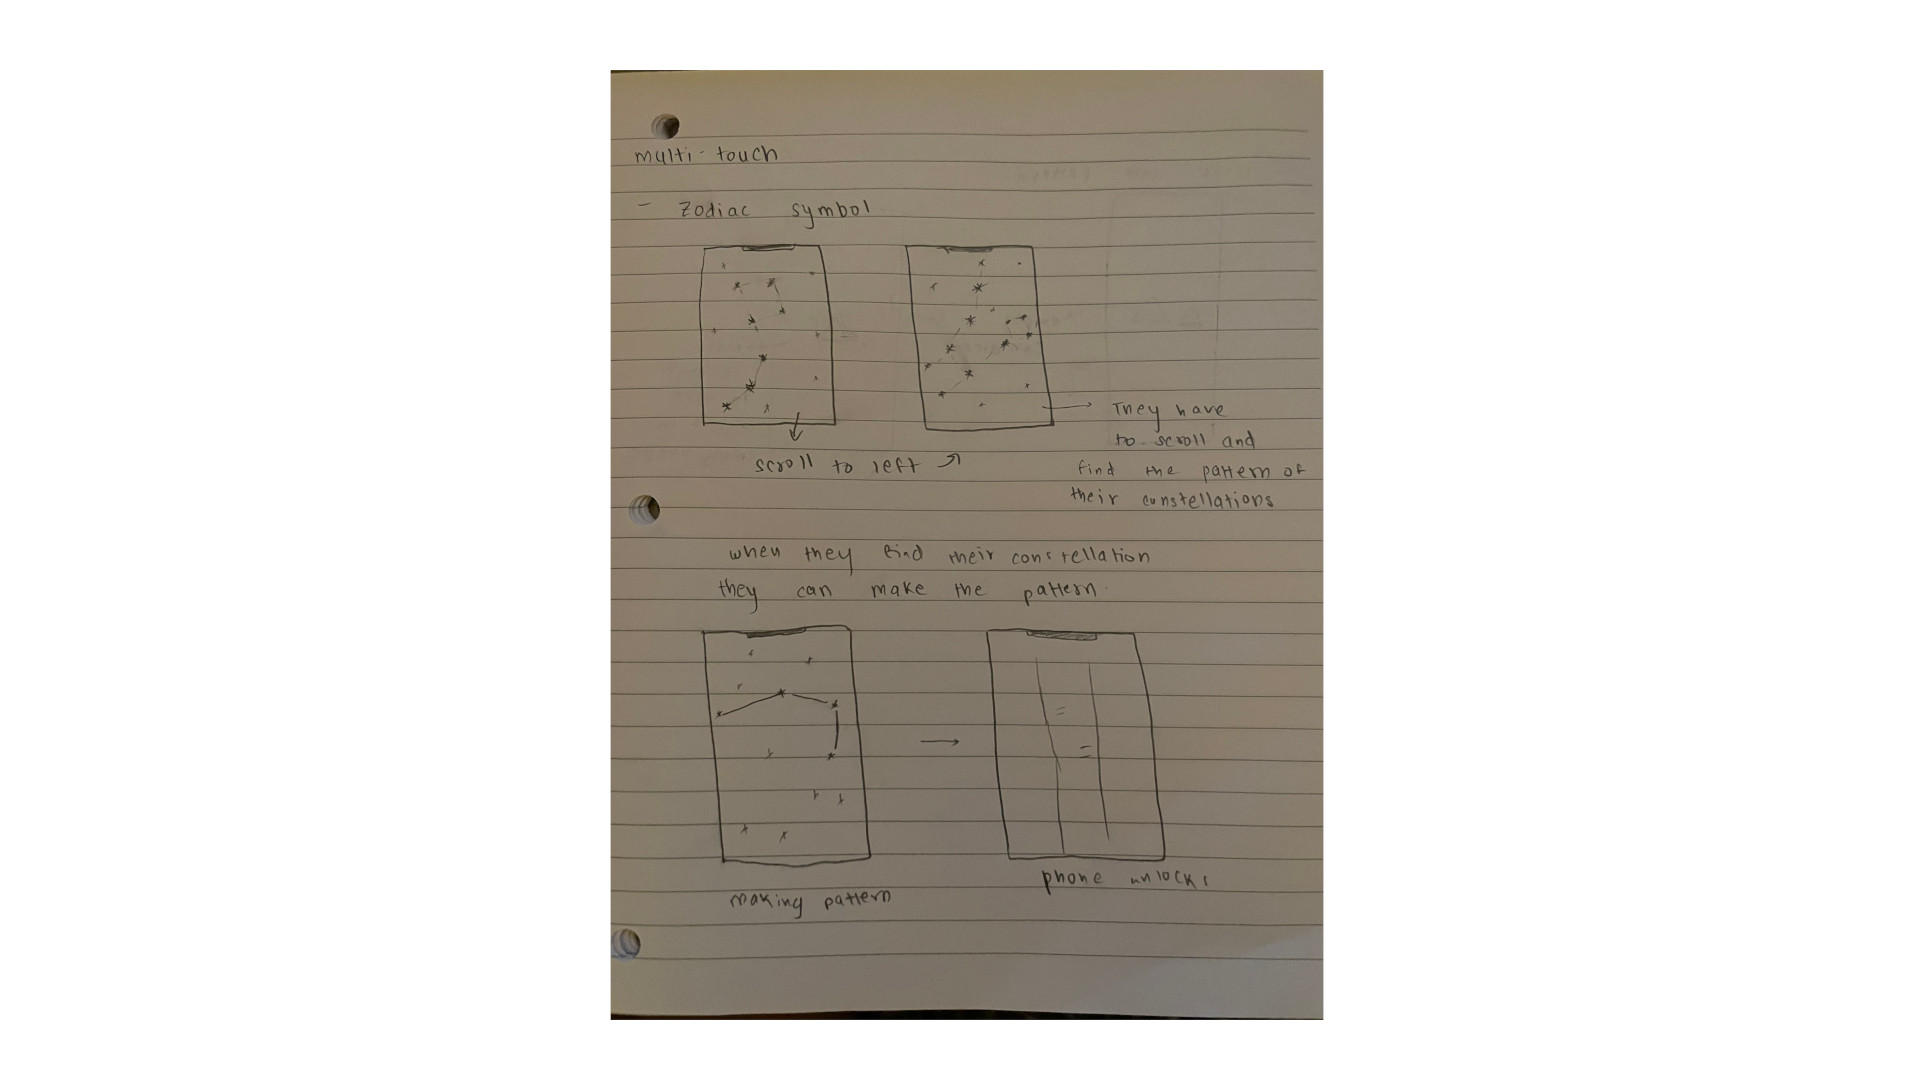 multi-touch
- Zodiac symbol
scroll to left
They have
to scroll and
find the pattern of
their constellations
when they find their constellation
they can make the pattern.
making pattern
phone unlocks